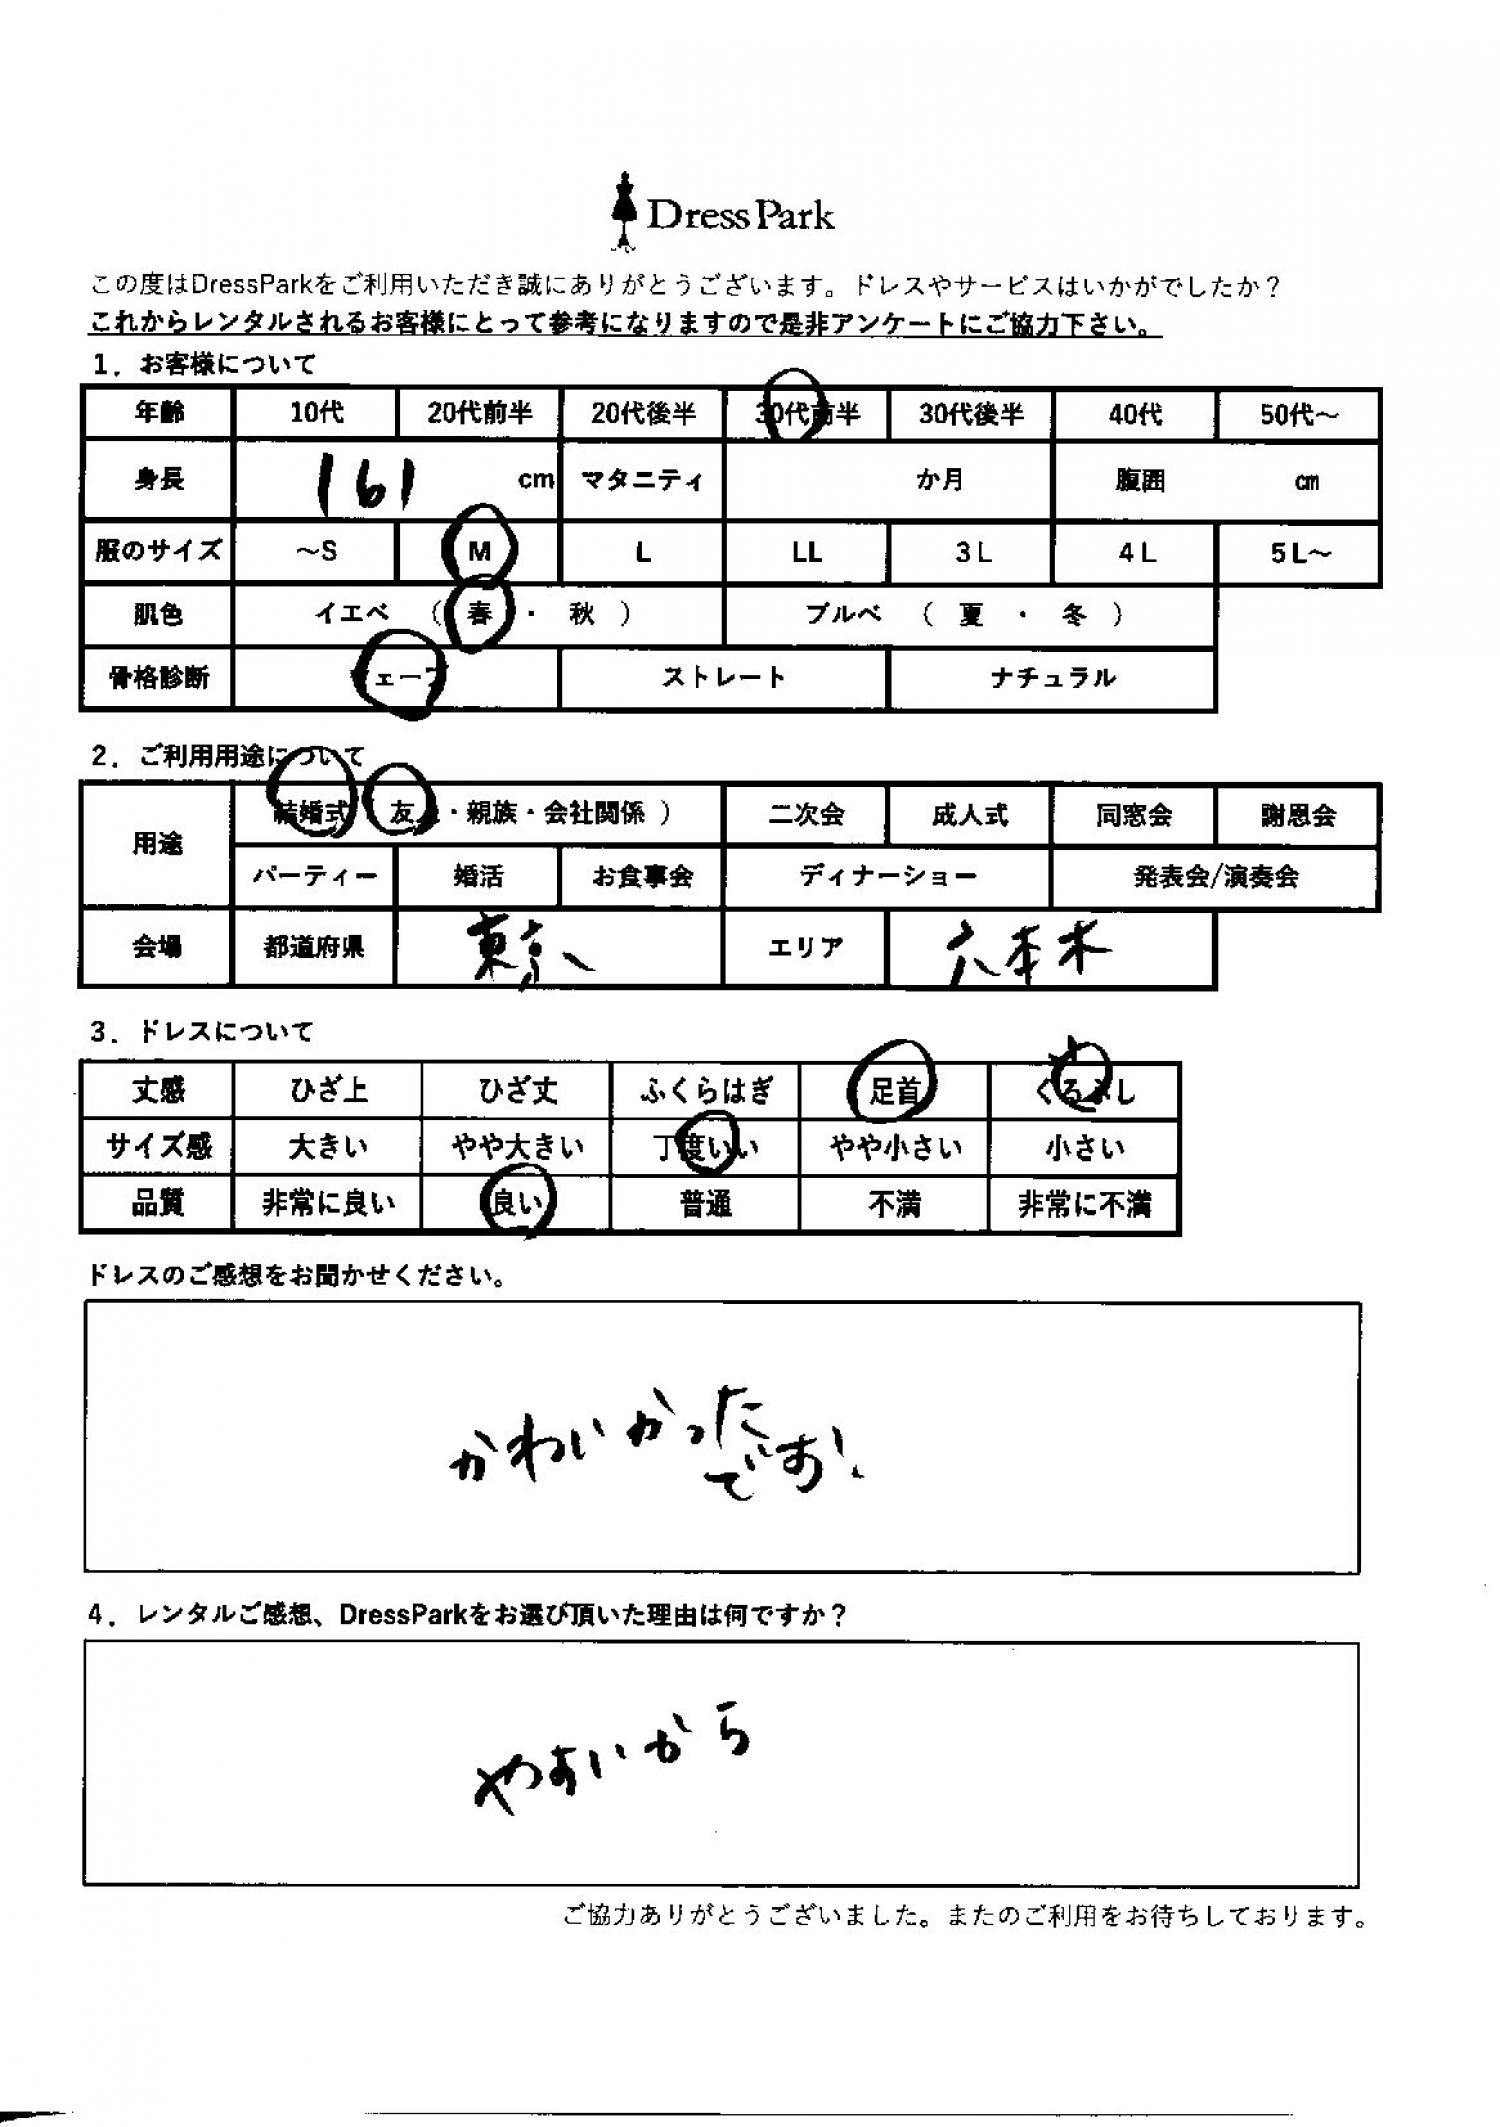 DressPark
この度はDressParkをご利用いただき誠にありがとうございます。ドレスやサービスはいかがでしたか？
これからレンタルされるお客様にとって参考になりますので是非アンケートにご協力下さい。
1．お客様について
年齢 10代 20代前半 20代後半 30代前半 30代後半 40代 50代～
身長 161 cm マタニティ か月 腹囲 cm
服のサイズ ～S M L LL 3L 4L 5L～
肌色 イエベ （ 春 ・ 秋 ） ブルベ （ 夏 ・ 冬 ）
骨格診断 ウェーブ ストレート ナチュラル
2．ご利用用途について
用途 結婚式（ 友人・親族・会社関係 ） 二次会 成人式 同窓会 謝恩会
パーティー 婚活 お食事会 ディナーショー 発表会/演奏会
会場 都道府県 東京 エリア 六本木
3．ドレスについて
丈感 ひざ上 ひざ丈 ふくらはぎ 足首 くるぶし
サイズ感 大きい やや大きい 丁度いい やや小さい 小さい
品質 非常に良い 良い 普通 不満 非常に不満
ドレスのご感想をお聞かせください。
かわいかった
です！
4．レンタルご感想、DressParkをお選び頂いた理由は何ですか？
やすいから
ご協力ありがとうございました。またのご利用をお待ちしております。